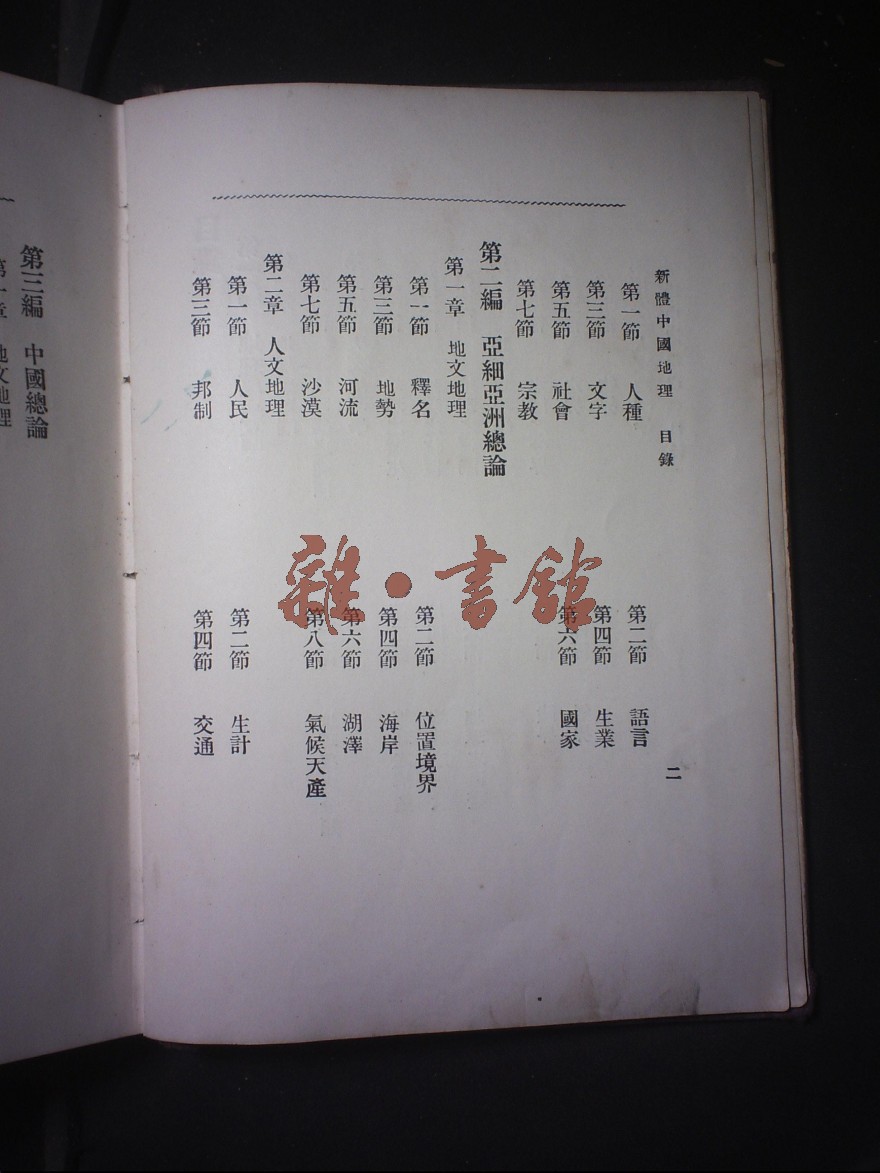 新體中國地理　目錄　二
第一節　人種　第二節　語言
第三節　文字　第四節　生業
第五節　社會　第六節　國家
第七節　宗教
第二編　亞細亞洲總論
第一章　地文地理
第一節　釋名　第二節　位置境界
第三節　地勢　第四節　海岸
第五節　河流　第六節　湖澤
第七節　沙漠　第八節　氣候天產
第二章　人文地理
第一節　人民　第二節　生計
第三節　邦制　第四節　交通
第三編　中國總論
第一章　地文地理
雜·書館